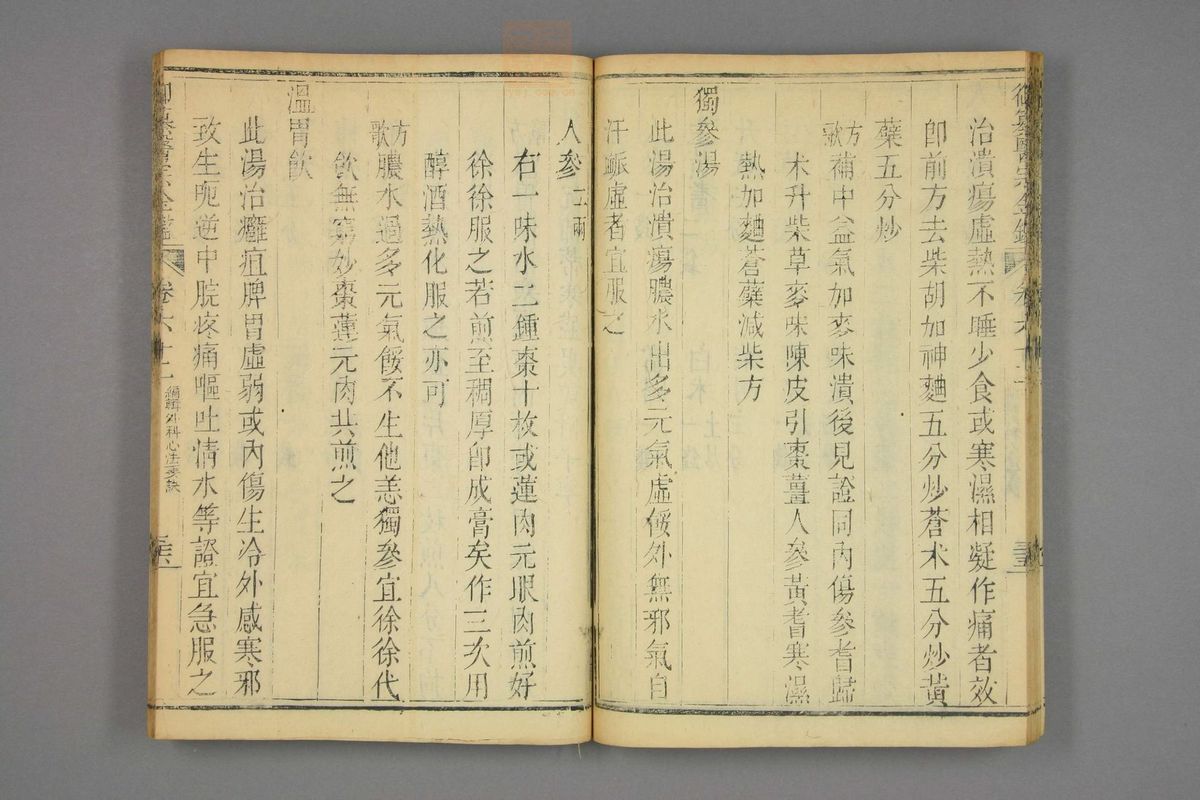 治潰瘍虛熱不睡少食或寒濕相凝作痛者效
卽前方去柴胡加神麯五分炒蒼术五分炒黃
蘗五分炒
方歌補中益氣加麥味潰後見證同內傷參耆歸
术升柴草麥味陳皮引棗薑人參黃耆寒濕
熱加麯蒼蘗減柴方
獨參湯
此湯治潰瘍膿水出多元氣虛餒外無邪氣自
汗脈虛者宜服之
人參二兩
右一味水二鍾棗十枚或蓮肉元眼肉煎好
徐徐服之若煎至稠厚卽成膏矣作三次用
醇酒熱化服之亦可
方歌膿水過多元氣餒不生他恙獨參宜徐徐代
飲無窮妙棗蓮元肉共煎之
溫胃飲
此湯治癰疽脾胃虛弱或內傷生冷外感寒邪
致生呃逆中脘疼痛嘔吐清水等證宜急服之
卷六十二
編輯外科心法要訣